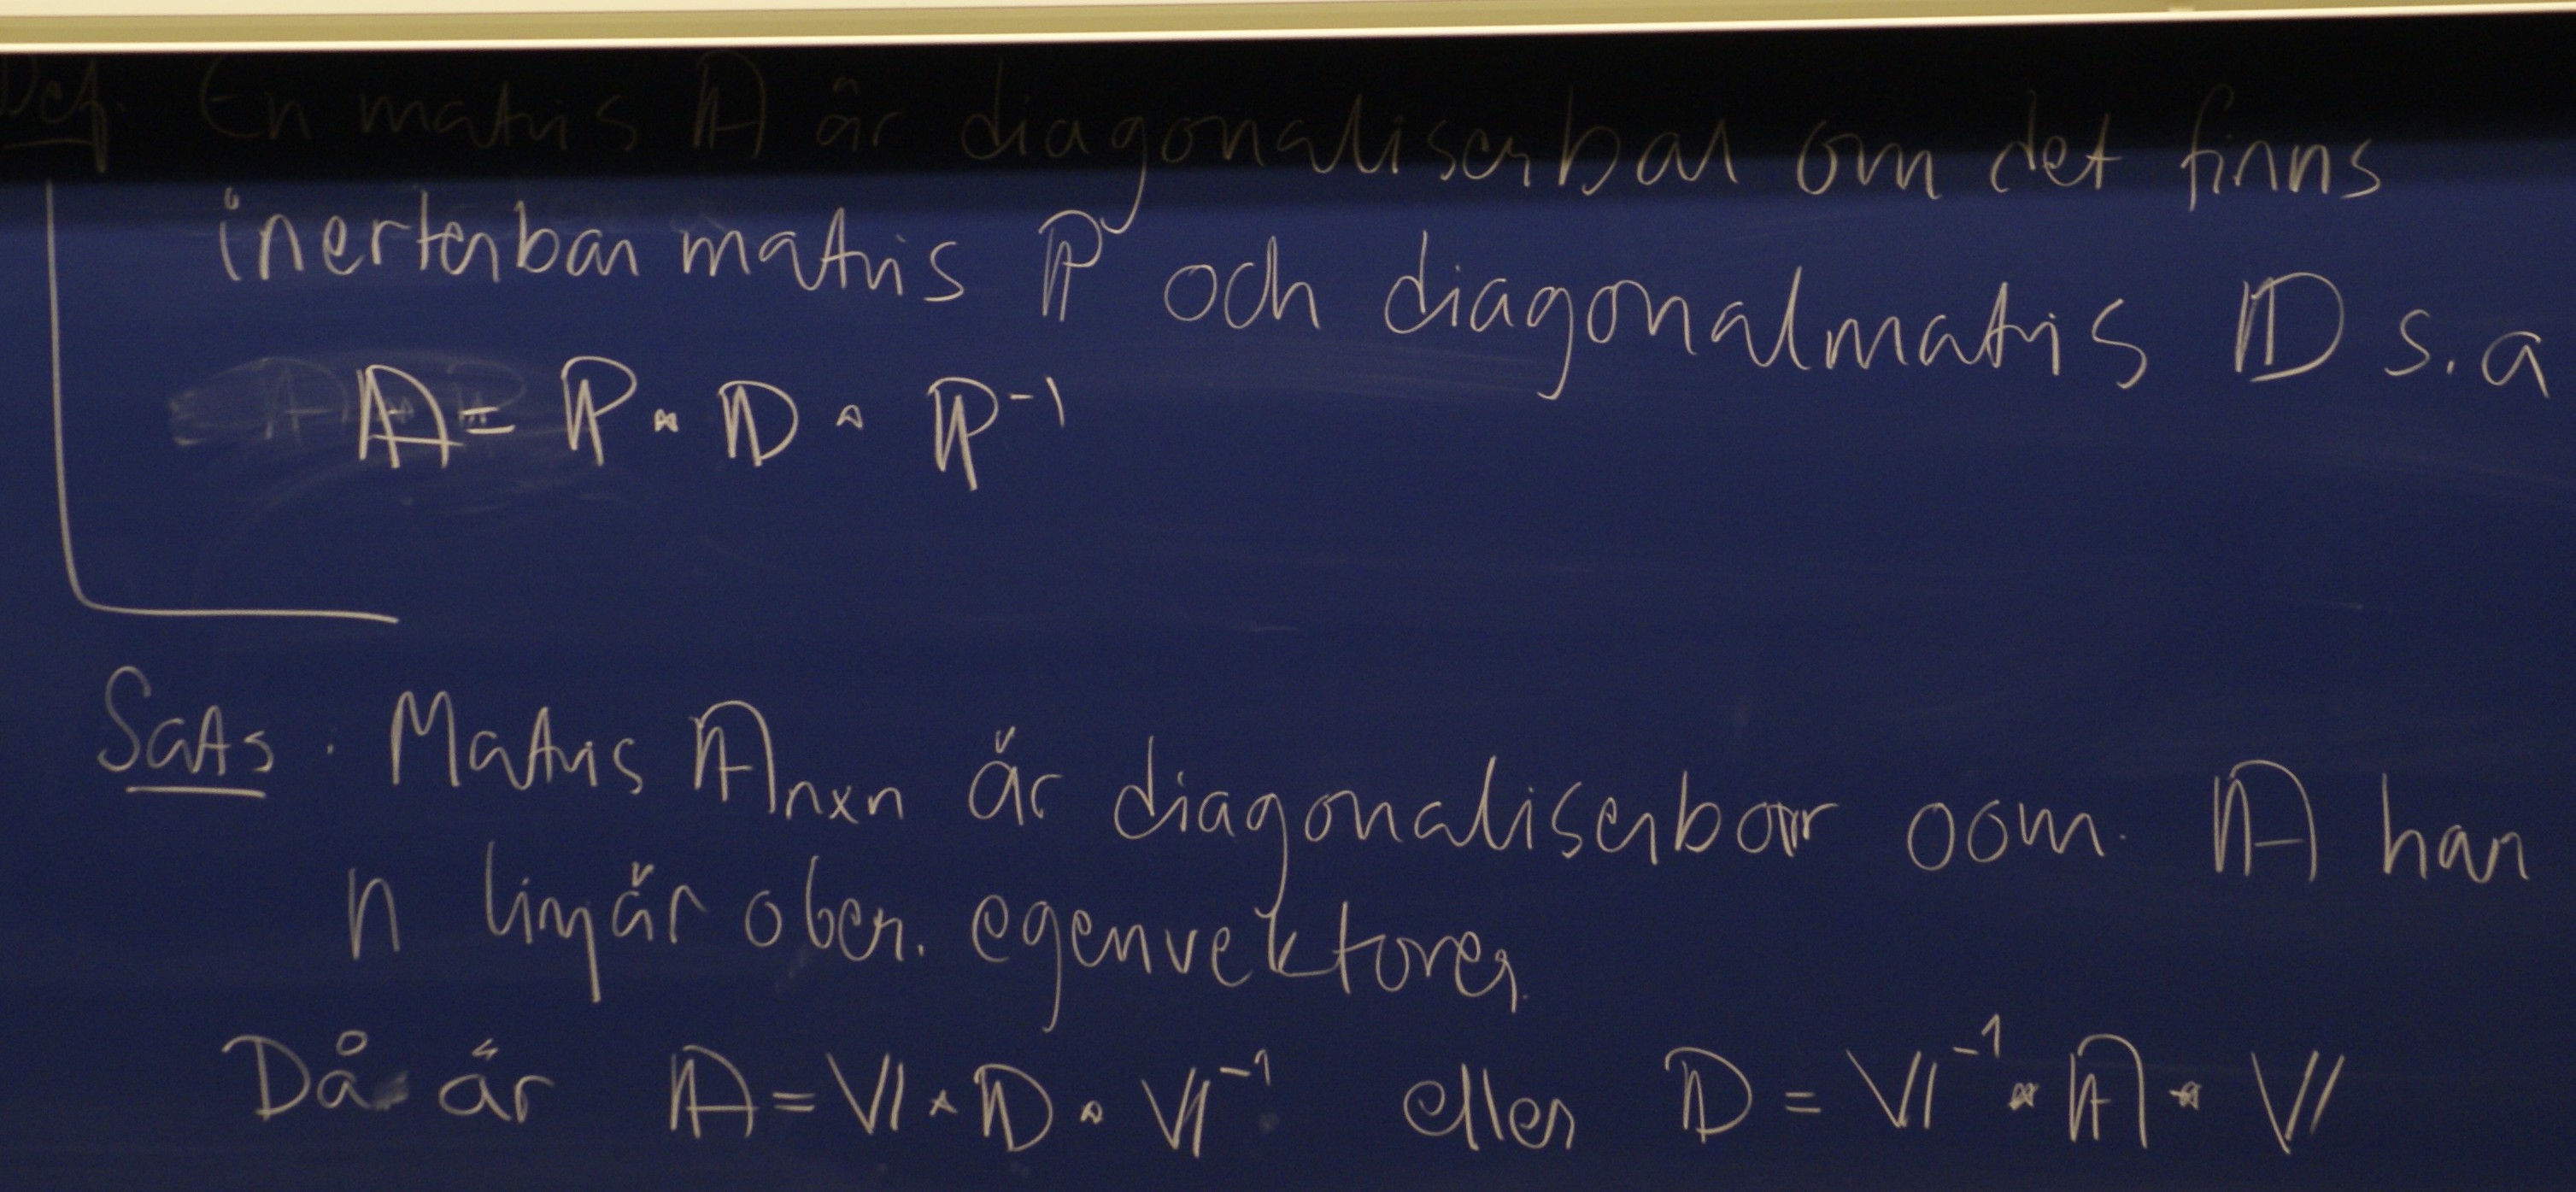 Def. En matris A är diagonaliserbar om det finns
inerterbar matris P och diagonalmatris D s.a
A = P · D · P⁻¹
Sats. Matris Anxn är diagonaliserbar oom. A har
n linjär ober. egenvektorer.
Då är A = V · D · V⁻¹ eller D = V⁻¹ · A · V